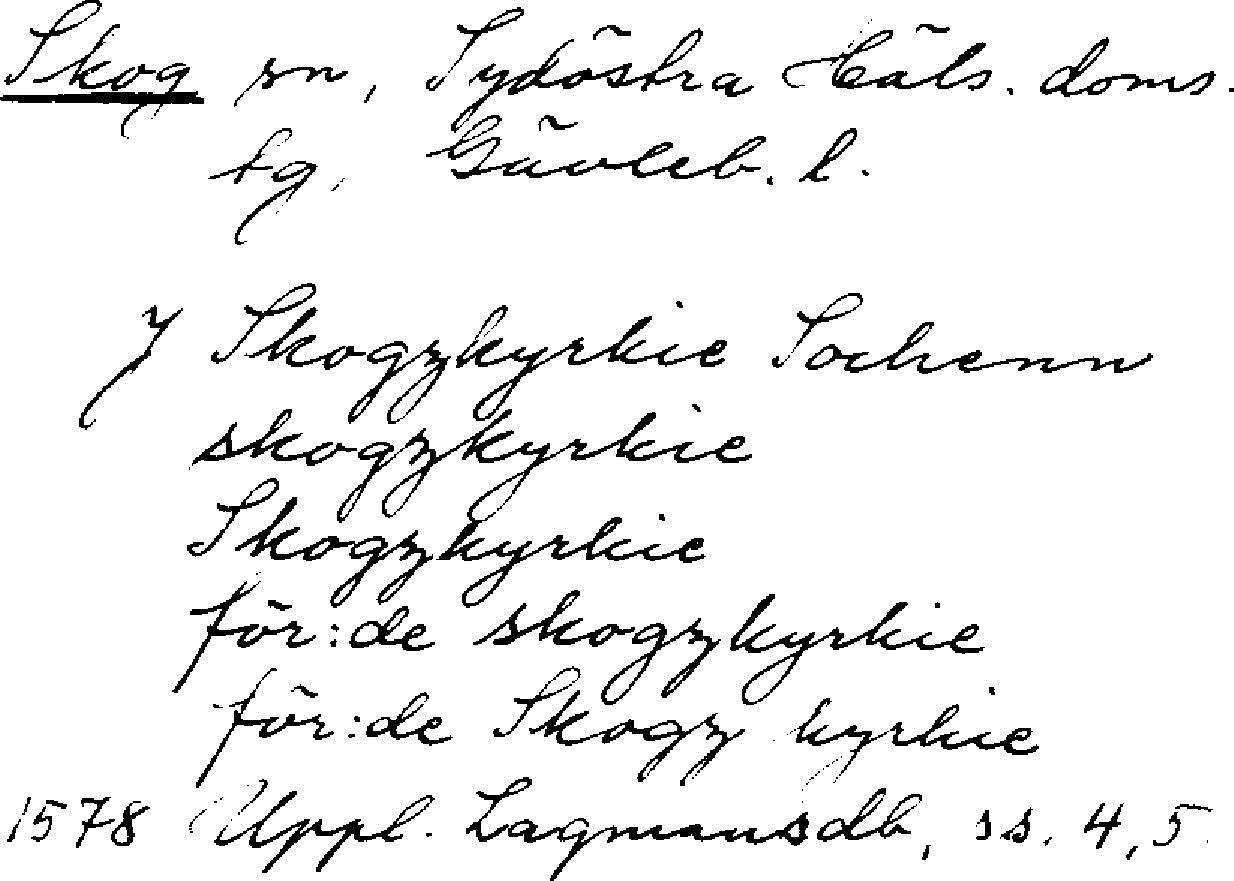 Skog sn, Sydöstra Häls. doms.
tg, Gävleb. l.
J Skogzkyrkie Sochenn
skogzkyrkie
Skogzkyrkie
för:de skogzkyrkie
för:de Skogz kyrkie
1578 Uppl. Lagmansdb, ss. 4, 5.